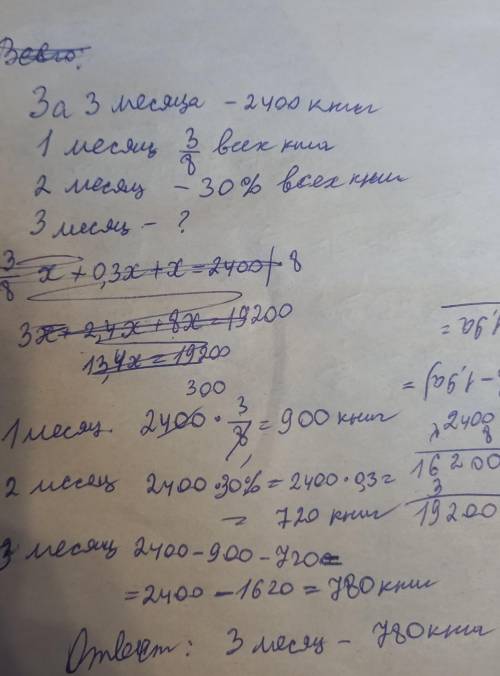 Всего:
За 3 месяца - 2400 книг
1 месяц 3/8 всех книг
2 месяц - 30% всех книг
3 месяц - ?
3/8 x + 0,3x + x = 2400 | · 8
3x + 2,4x + 8x = 19200
13,4x = 19200
300
1 месяц. 2400 · 3/8 = 900 книг
2 месяц 2400 · 30% = 2400 · 0,3 =
= 720 книг
3 месяц 2400 - 900 - 720 =
= 2400 - 1620 = 780 книг
Ответ: 3 месяц - 780 книг
1,9a =
- 1,9a) =
x 2400
8
16200
3
19200